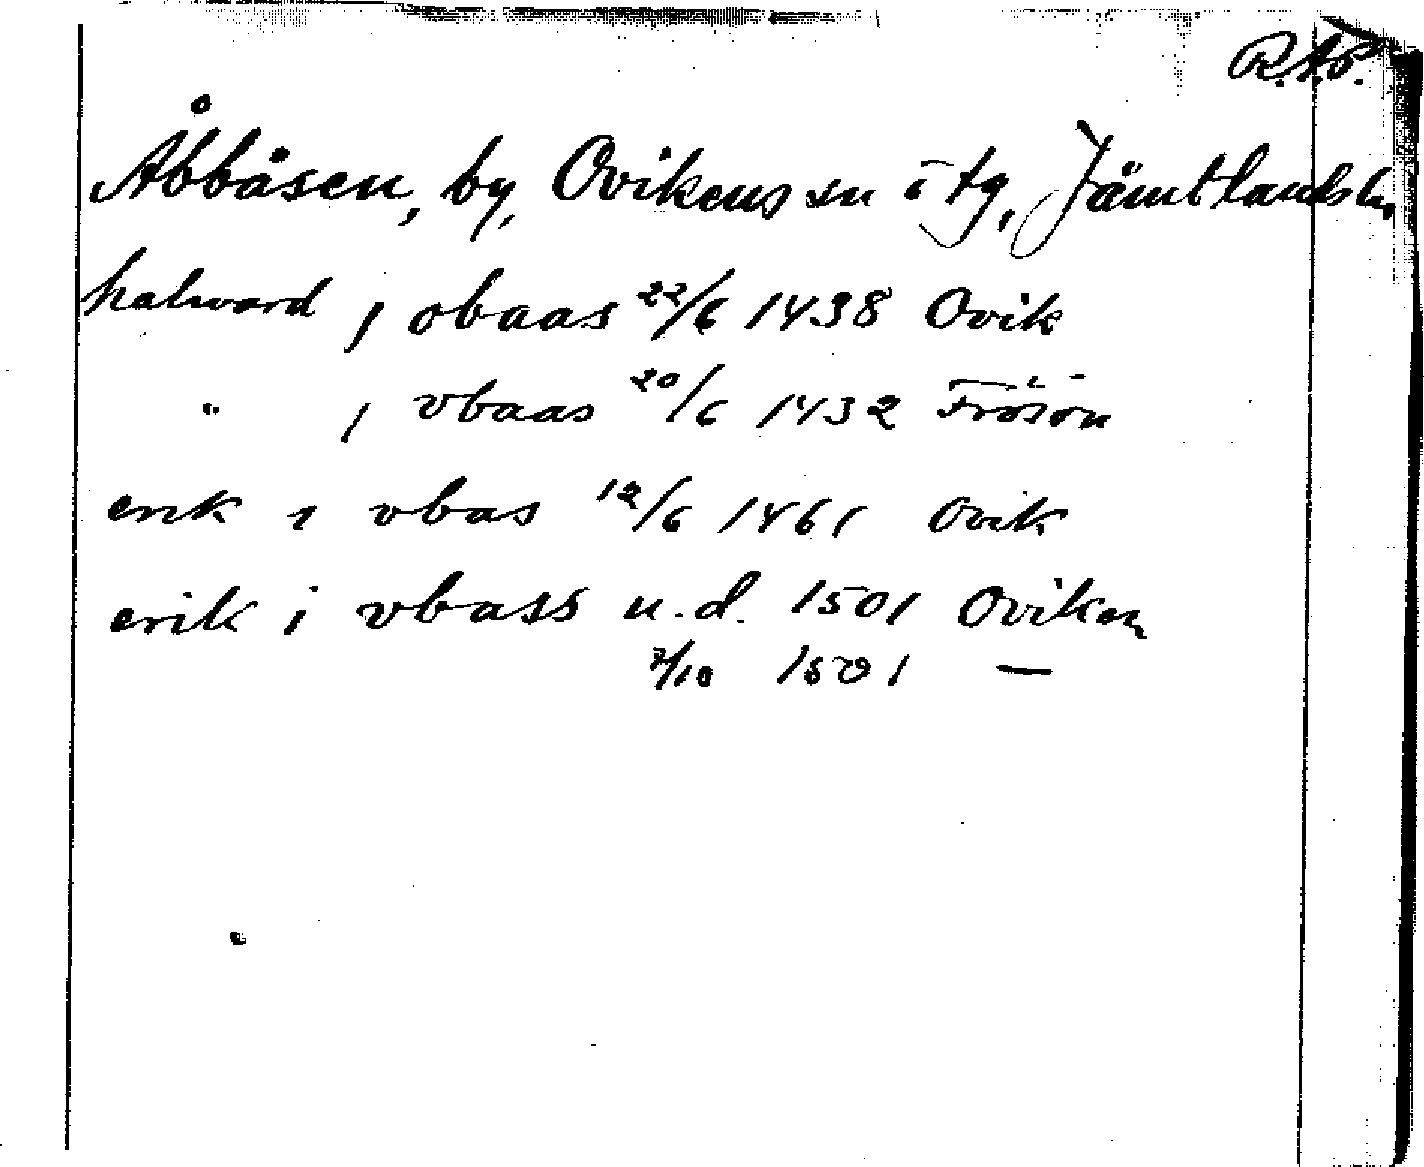 R.A.P.
Åbbåsen, by, Ovikens sn o tg, Jämtlands l.
halward j obaas 22/6 1438 Ovik
" j vbaas 20/6 1432 Frösön
erik i vbas 12/6 1461 Ovik
erik i vbass u.d. 1501 Oviken
2/10 1501 —